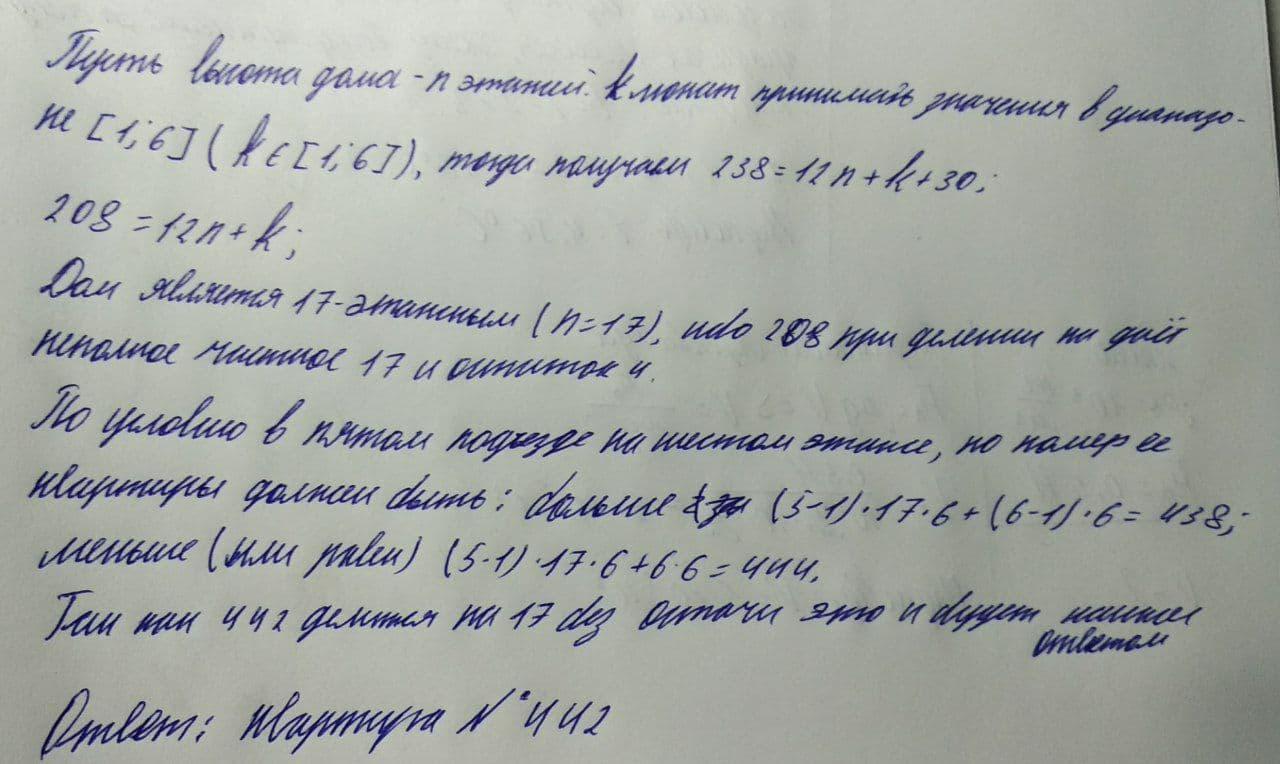 Пусть высота дома - n этажей. k может принимать значения в диапазо-
не [1; 6] (k ∈ [1; 6]), тогда получаем 238 = 12n + k + 30;
208 = 12n + k;
Дом является 17-этажным (n = 17), ибо 208 при делении на даёт
неполное частное 17 и остаток 4.
По условию в пятом подъезде на шестом этаже, но номер ее
квартиры должен быть: больше (5-1)·17·6 + (6-1)·6 = 438;
меньше (или равен) (5-1)·17·6 + 6·6 = 444.
Так как 442 делится на 17 без остачи это и будет нашим
ответом
Ответ: квартира №442